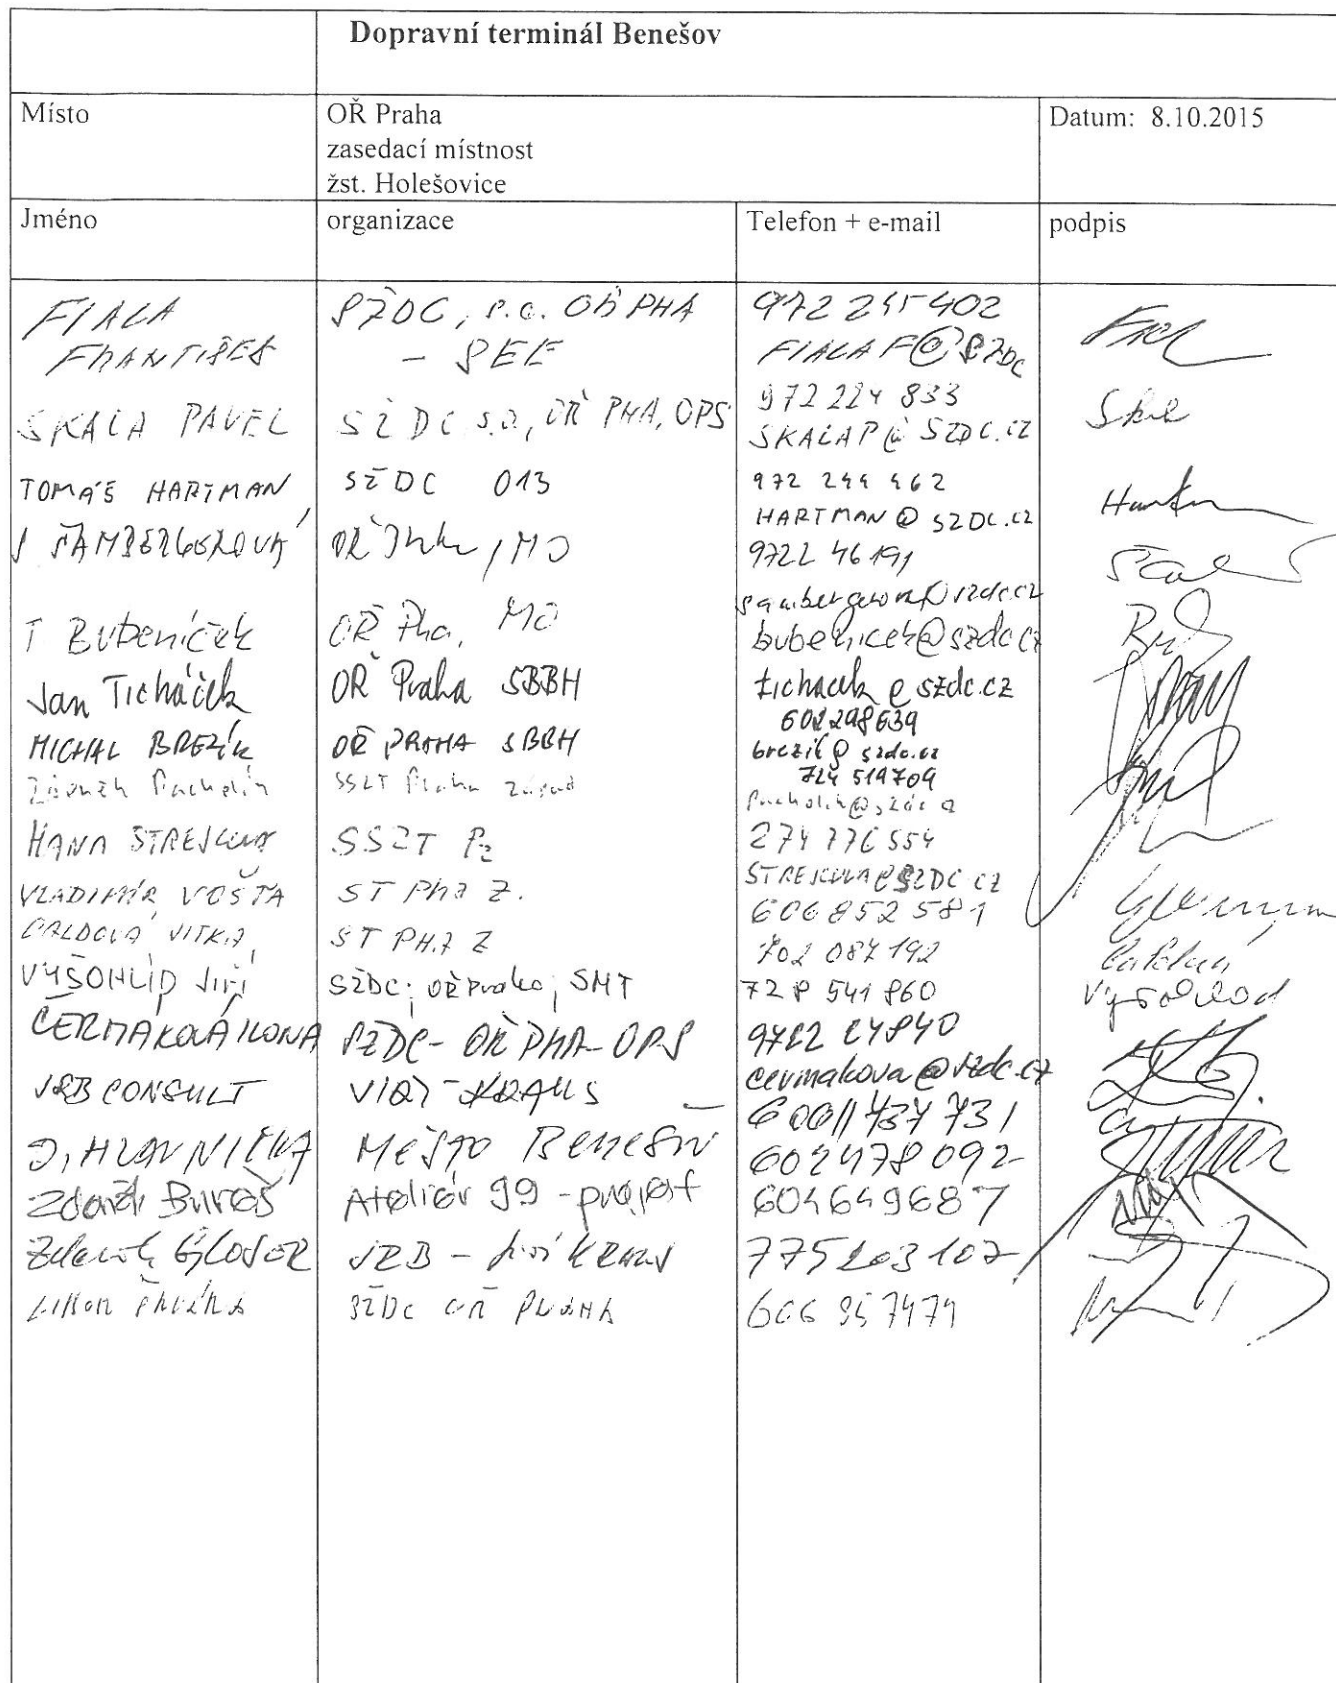 Dopravní terminál Benešov
Místo
OŘ Praha
zasedací místnost
žst. Holešovice
Datum: 8.10.2015
Jméno
organizace
Telefon + e-mail
podpis
FIALA SŽDC, s.o. OŘ PHA 972 245 402
FRANTIŠEK - SEE FIALAF@SŽDC
SKALA PAVEL SŽDC s.o, OŘ PHA, OPS 972 224 833
SKALAP@SZDC.CZ
TOMÁŠ HARTMAN SŽDC 013 972 244 462
HARTMAN@SZDC.CZ
ŠAMBERGEROVÁ OŘ MO 9722 46 191
sambergerova@szdc.cz
T Bubeníček OŘ Pha, MO bubenicek@szdc.cz
Jan Ticháček OŘ Praha SBBH tichacek@szdc.cz
602298639
MICHAL BREZÍK OŘ PRAHA SBBH brezik@szdc.cz
724 519709
SSZT Praha západ
HANA SSZT Pz 274 776 554
VLADIMÍR VOŠTA ST PHA Z. 606 852 581
JITKA ST PHA Z 702 087 192
VYŠOHLÍD JIŘÍ SŽDC; OŘ Praha; SMT 728 541 860
ČERMÁKOVÁ ILONA SŽDC - OŘ PHA - OPS 9722 24840
cermakova@szdc.cz
JRB CONSULT JIŘÍ KRAUS
HLAVNIČKA MĚSTO BENEŠOV 602478092
Zdeněk Bureš Ateliér 99 - projekt 604649687
Zdeněk GLOSER JRB - Jiří KRAUS 775203107
SŽDC OŘ PRAHA 606 957474